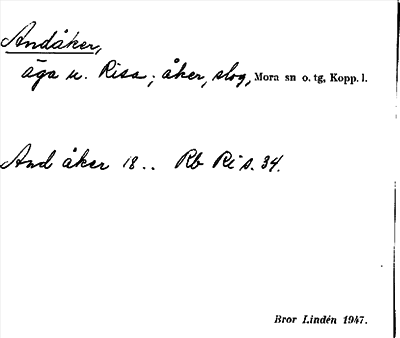 Andåker,
äga u. Risa; åker, slog, Mora sn o. tg, Kopp. l.
And åker 18.. Rb Ris. 34.
Bror Lindén 1947.